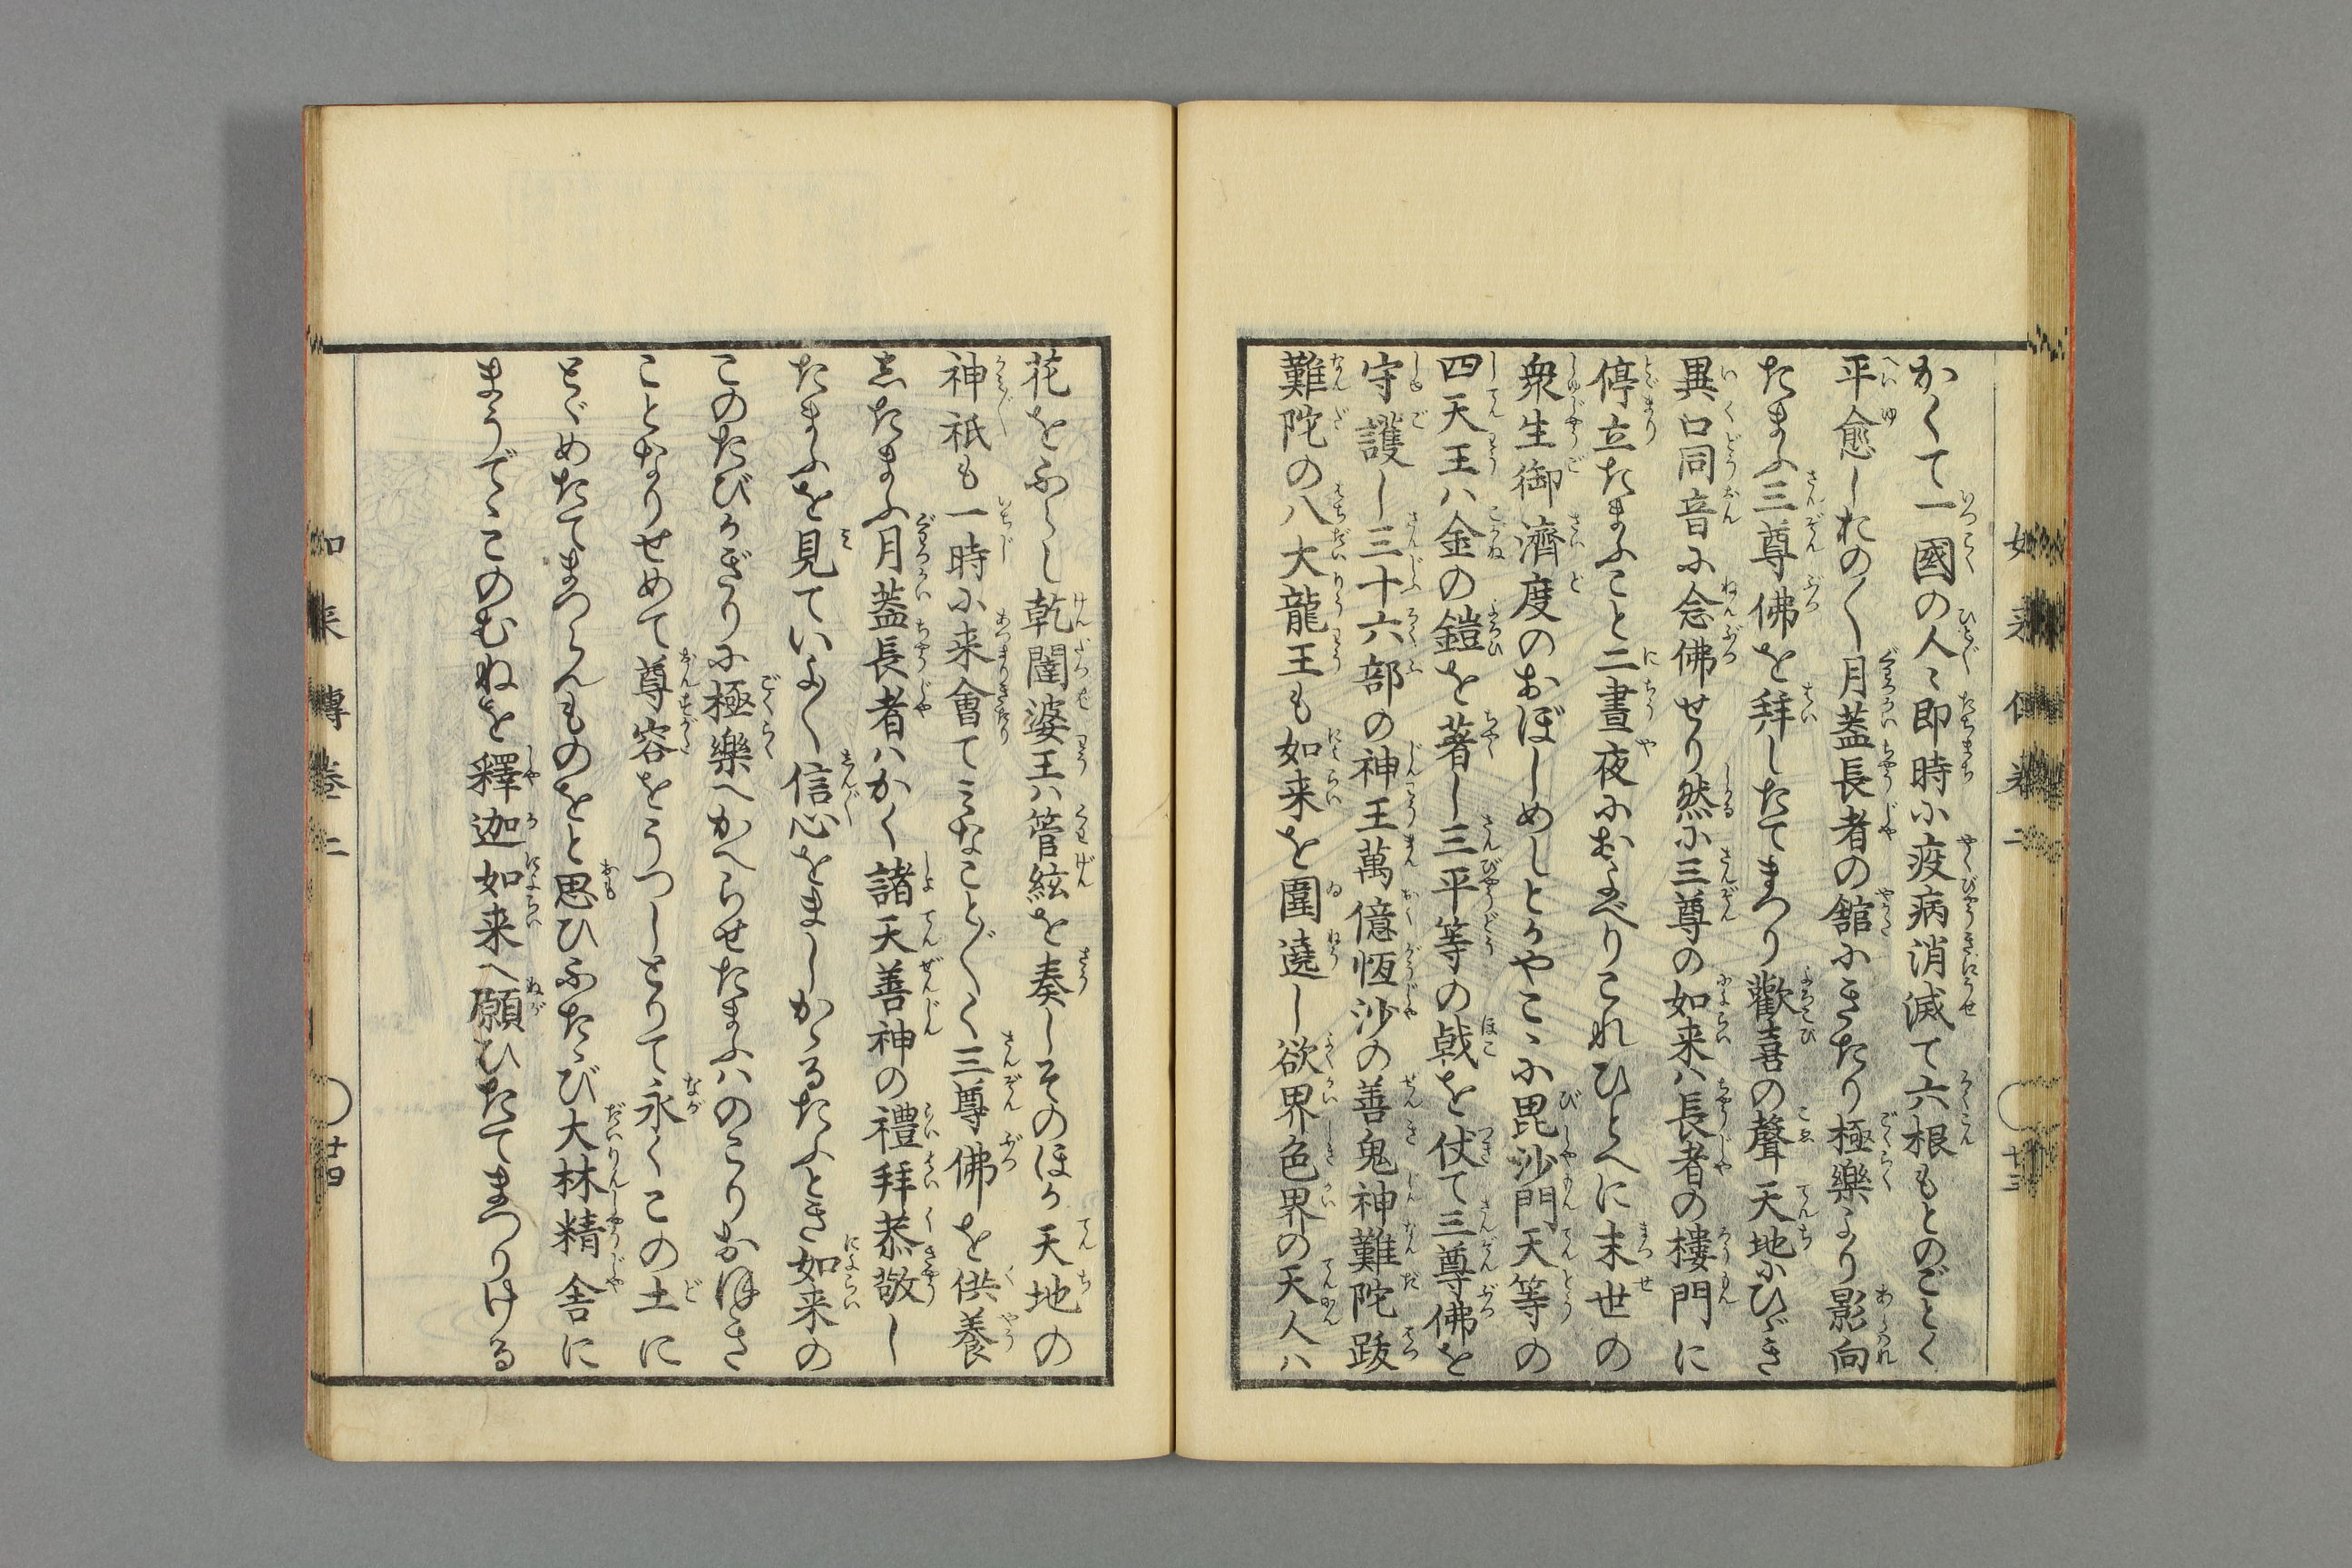 かくて一國の人〻即時に疫病消滅て六根もとのごとく
平愈しおの〱月蓋長者の舘にきたり極樂より影向
たまふ三尊佛を拜したてまつり歡喜の聲天地にひゞき
異口同音に念佛せり然に三尊の如来ハ長者の樓門に
停立たまふこと二晝夜におよべりこれひとへに末世の
衆生御濟度のおぼしめしとかやこゝに毘沙門天等の
四天王ハ金の鎧を著し三平等の戟を仗て三尊佛を
守護し三十六部の神王萬億恆沙の善鬼神難陀跋
難陀の八大龍王も如来を圍遶し欲界色界の天人ハ
如来傳卷二
廿三
花をふらし乾闥婆王ハ管絃を奏しそのほか天地の
神祇も一時に来會てみなこと〲く三尊佛を供養
したまふ月蓋長者ハかく諸天善神の禮拜恭敬し
たまふを見ていよ〱信心をましかゝるたふとき如来の
このたびかぎりに極樂へかへらせたまふハのこりおほき
ことなりせめて尊容をうつしとりて永くこの土に
とゞめたてまつらんものをと思ひふたゝび大林精舎に
まうでゝこのむねを釋迦如来へ願ひたてまつりける
如来傳卷二
廿四